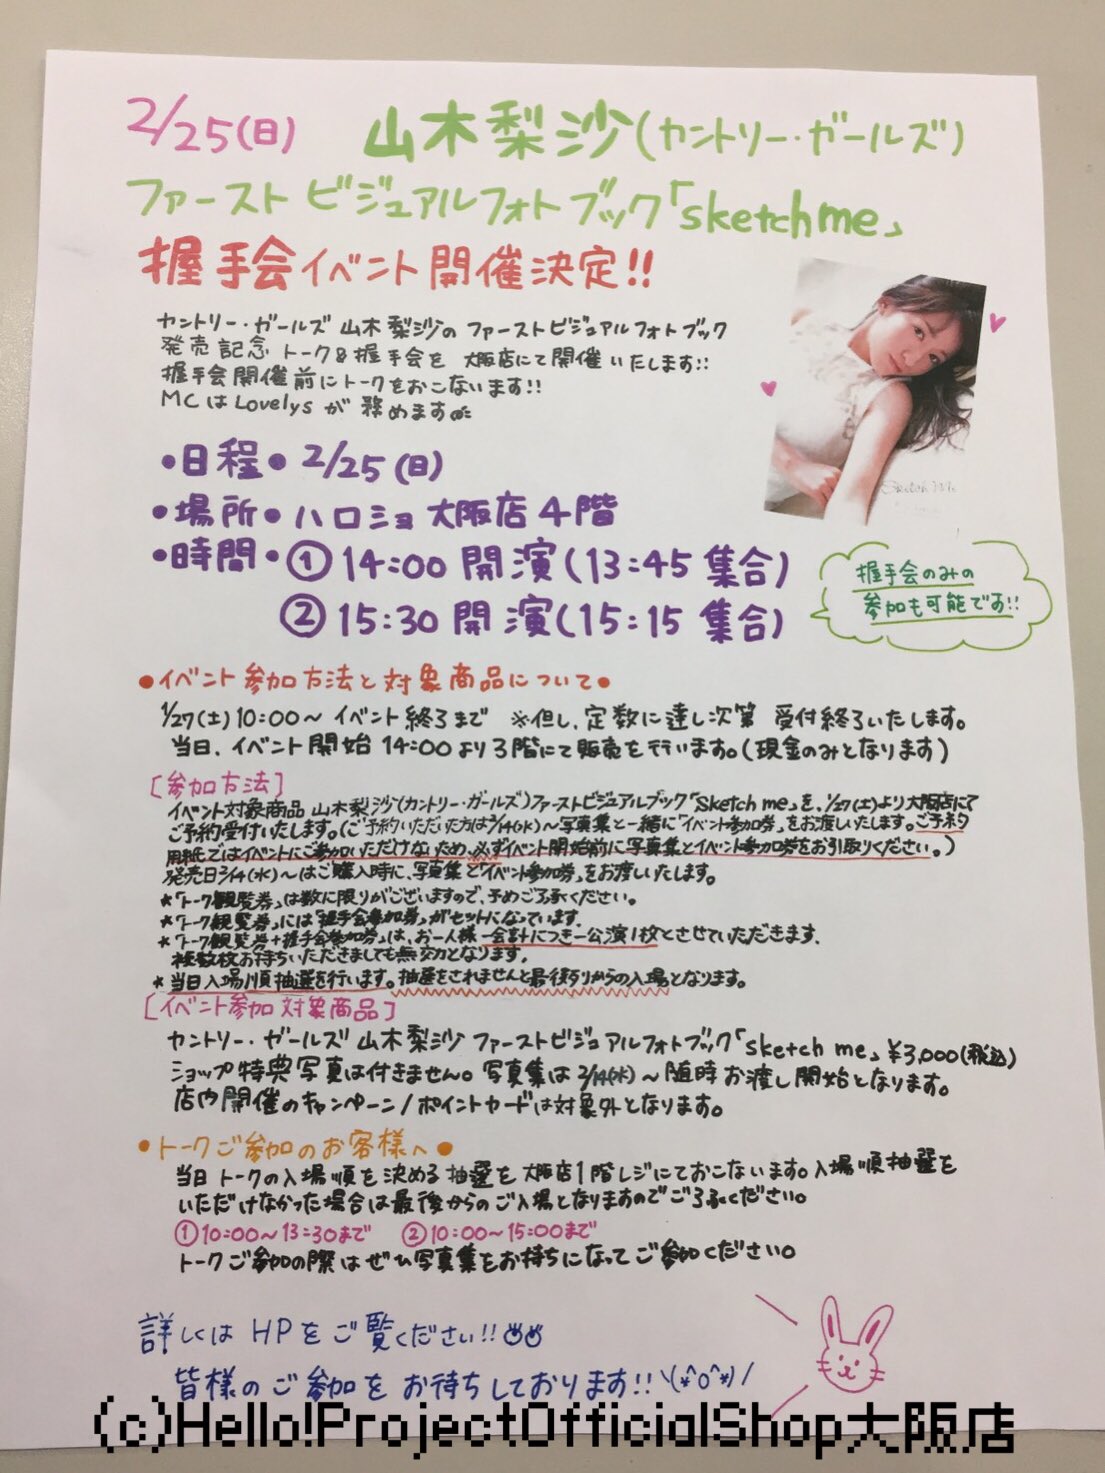 2/25(日) 山木梨沙(カントリー・ガールズ)
ファーストビジュアルフォトブック「sketch me」
握手会イベント開催決定!!
カントリー・ガールズ 山木梨沙の ファーストビジュアルフォトブック
発売記念 トーク&握手会を 大阪店にて開催いたします!!
握手会開催前にトークをおこないます!!
MCはLovelysが務めます
Sketch Me
•日程• 2/25(日)
•場所• ハロショ大阪店4階
•時間• ①14:00 開演(13:45 集合)
②15:30 開演(15:15 集合)
握手会のみの
参加も可能です!!
•イベント参加方法と対象商品について•
1/27(土)10:00〜イベント終了まで ※但し、定数に達し次第 受付終了いたします。
当日、イベント開始14:00より3階にて販売を行います。(現金のみとなります)
[参加方法]
イベント対象商品 山木梨沙(カントリー・ガールズ)ファーストビジュアルブック「Sketch me」を、1/27(土)より大阪店にて
ご予約受付いたします。(ご予約いただいた方は2/14(水)〜写真集と一緒に「イベント参加券」をお渡しいたします。ご予約
用紙ではイベントにご参加いただけないため、必ずイベント開始前に写真集とイベント参加券をお引取りください。)
発売日2/14(水)〜はご購入時に、写真集と「イベント参加券」をお渡しいたします。
*「トーク観覧券」は数に限りがございますので、予めご了承ください。
*「トーク観覧券」には「握手会参加券」がセットになっています。
*「トーク観覧券+握手会参加券」は、お一人様一会計につき一公演1枚とさせていただきます。
複数枚お持ちいただきましても無効となります。
*当日入場順抽選を行います。抽選をされませんと最後列からの入場となります。
[イベント参加対象商品]
カントリー・ガールズ 山木梨沙 ファーストビジュアルフォトブック「sketch me」¥3,000(税込)
ショップ特典写真は付きません。写真集は2/14(水)〜随時お渡し開始となります。
店内開催のキャンペーン/ポイントカードは対象外となります。
•トークご参加のお客様へ•
当日トークの入場順を決める抽選を大阪店1階レジにておこないます。入場順抽選を
いただけなかった場合は最後からのご入場となりますのでご了承ください。
①10:00〜13:30まで ②10:00〜15:00まで
トークご参加の際はぜひ写真集をお持ちになってご参加ください。
詳しくはHPをご覧ください!!
皆様のご参加をお待ちしております!!\(*^o^*)/
(c)Hello!ProjectOfficialShop大阪店